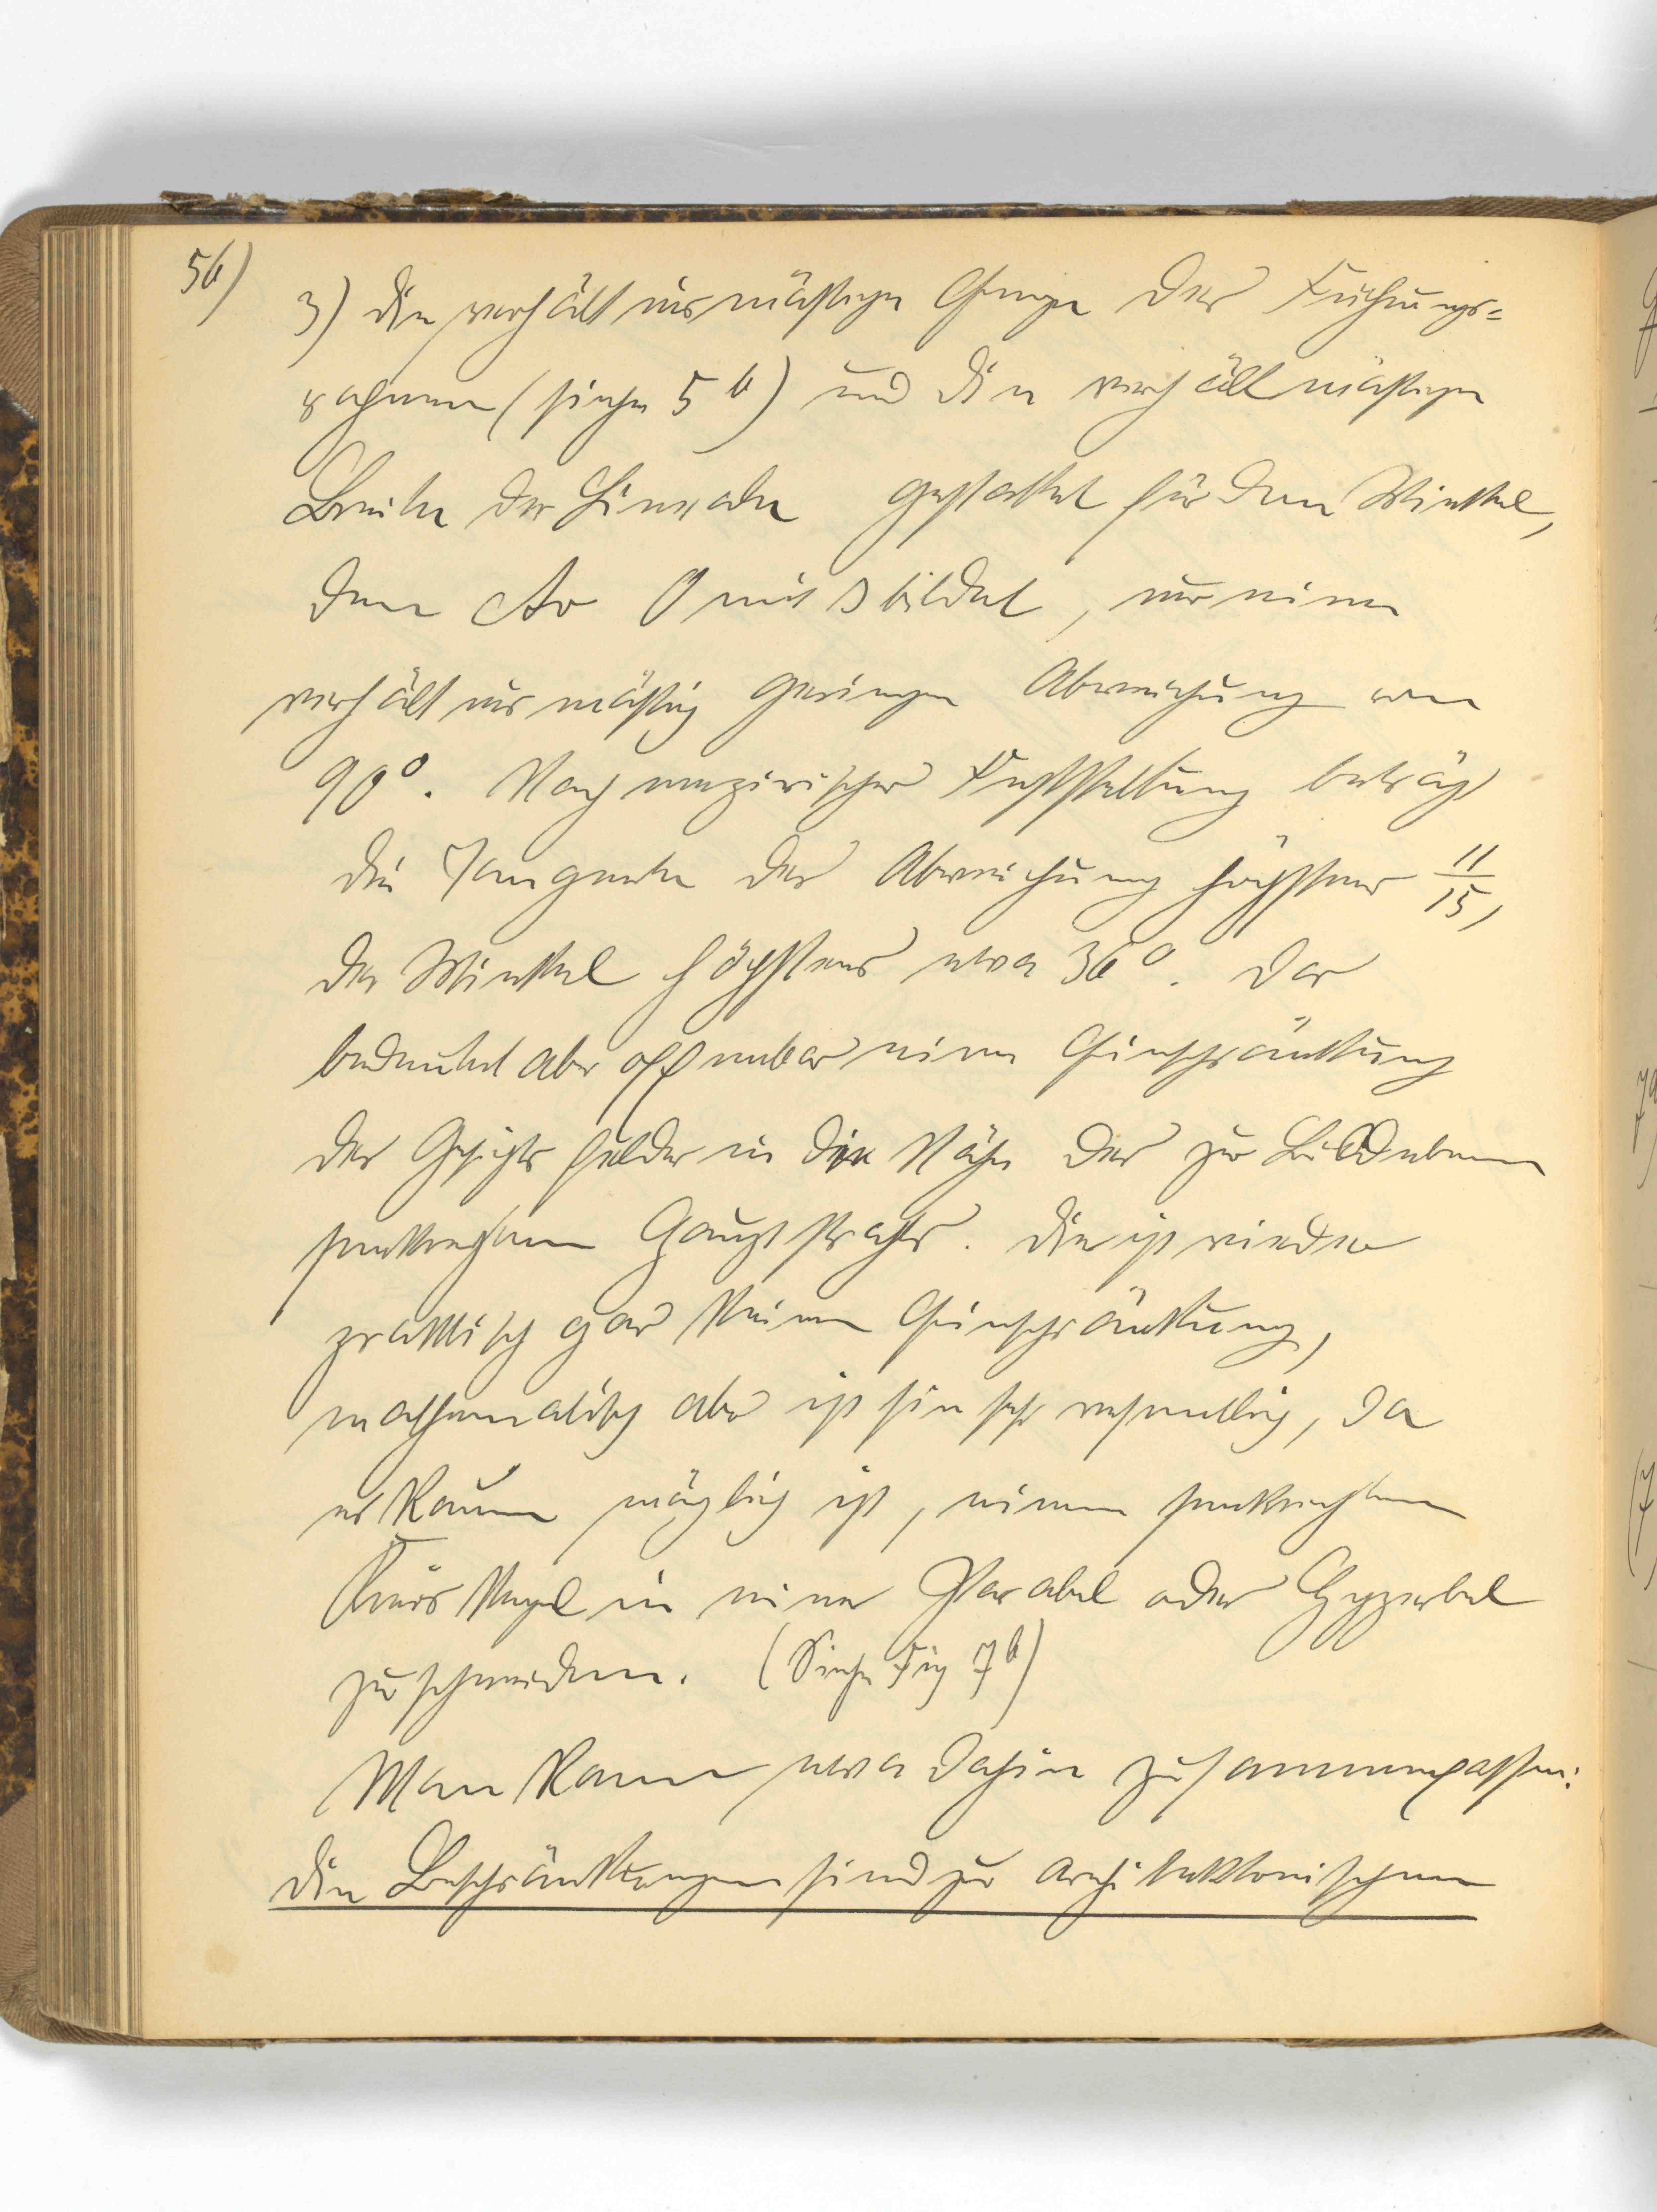 56)
3) die verhältnismäßige Enge der Führungs=
rahmen (siehe 5b) und die verhältmäßige
Breite der Lineale gestattet für den Winkel,
den Ar O mit S bildet, nur eine
verhältnismäßig geringe Abweichung von
90°. Nach empirischer Feststellung beträgt
die Tangente der Abweichung höchstens 11/15,
der Winkel höchstens etwa 36°. Das
bedeutet aber offenbar eine Einschränkung
des Gesichtsfeldes in die Nähe des zur Bildebene
senkrechten Hauptstrahls. Dies ist wieder
praktisch gar keine Einschränkung,
mathematisch aber ist sie sehr wesentlich, da
es kaum möglich ist, einen senkrechten
Kreiskegel in einer Parabel oder Hyperbel
zu schneiden. (Siehe Fig 7b)
Man kann etwa dahin zusammenfassen:
die Beschränkungen sind zur architektonischen